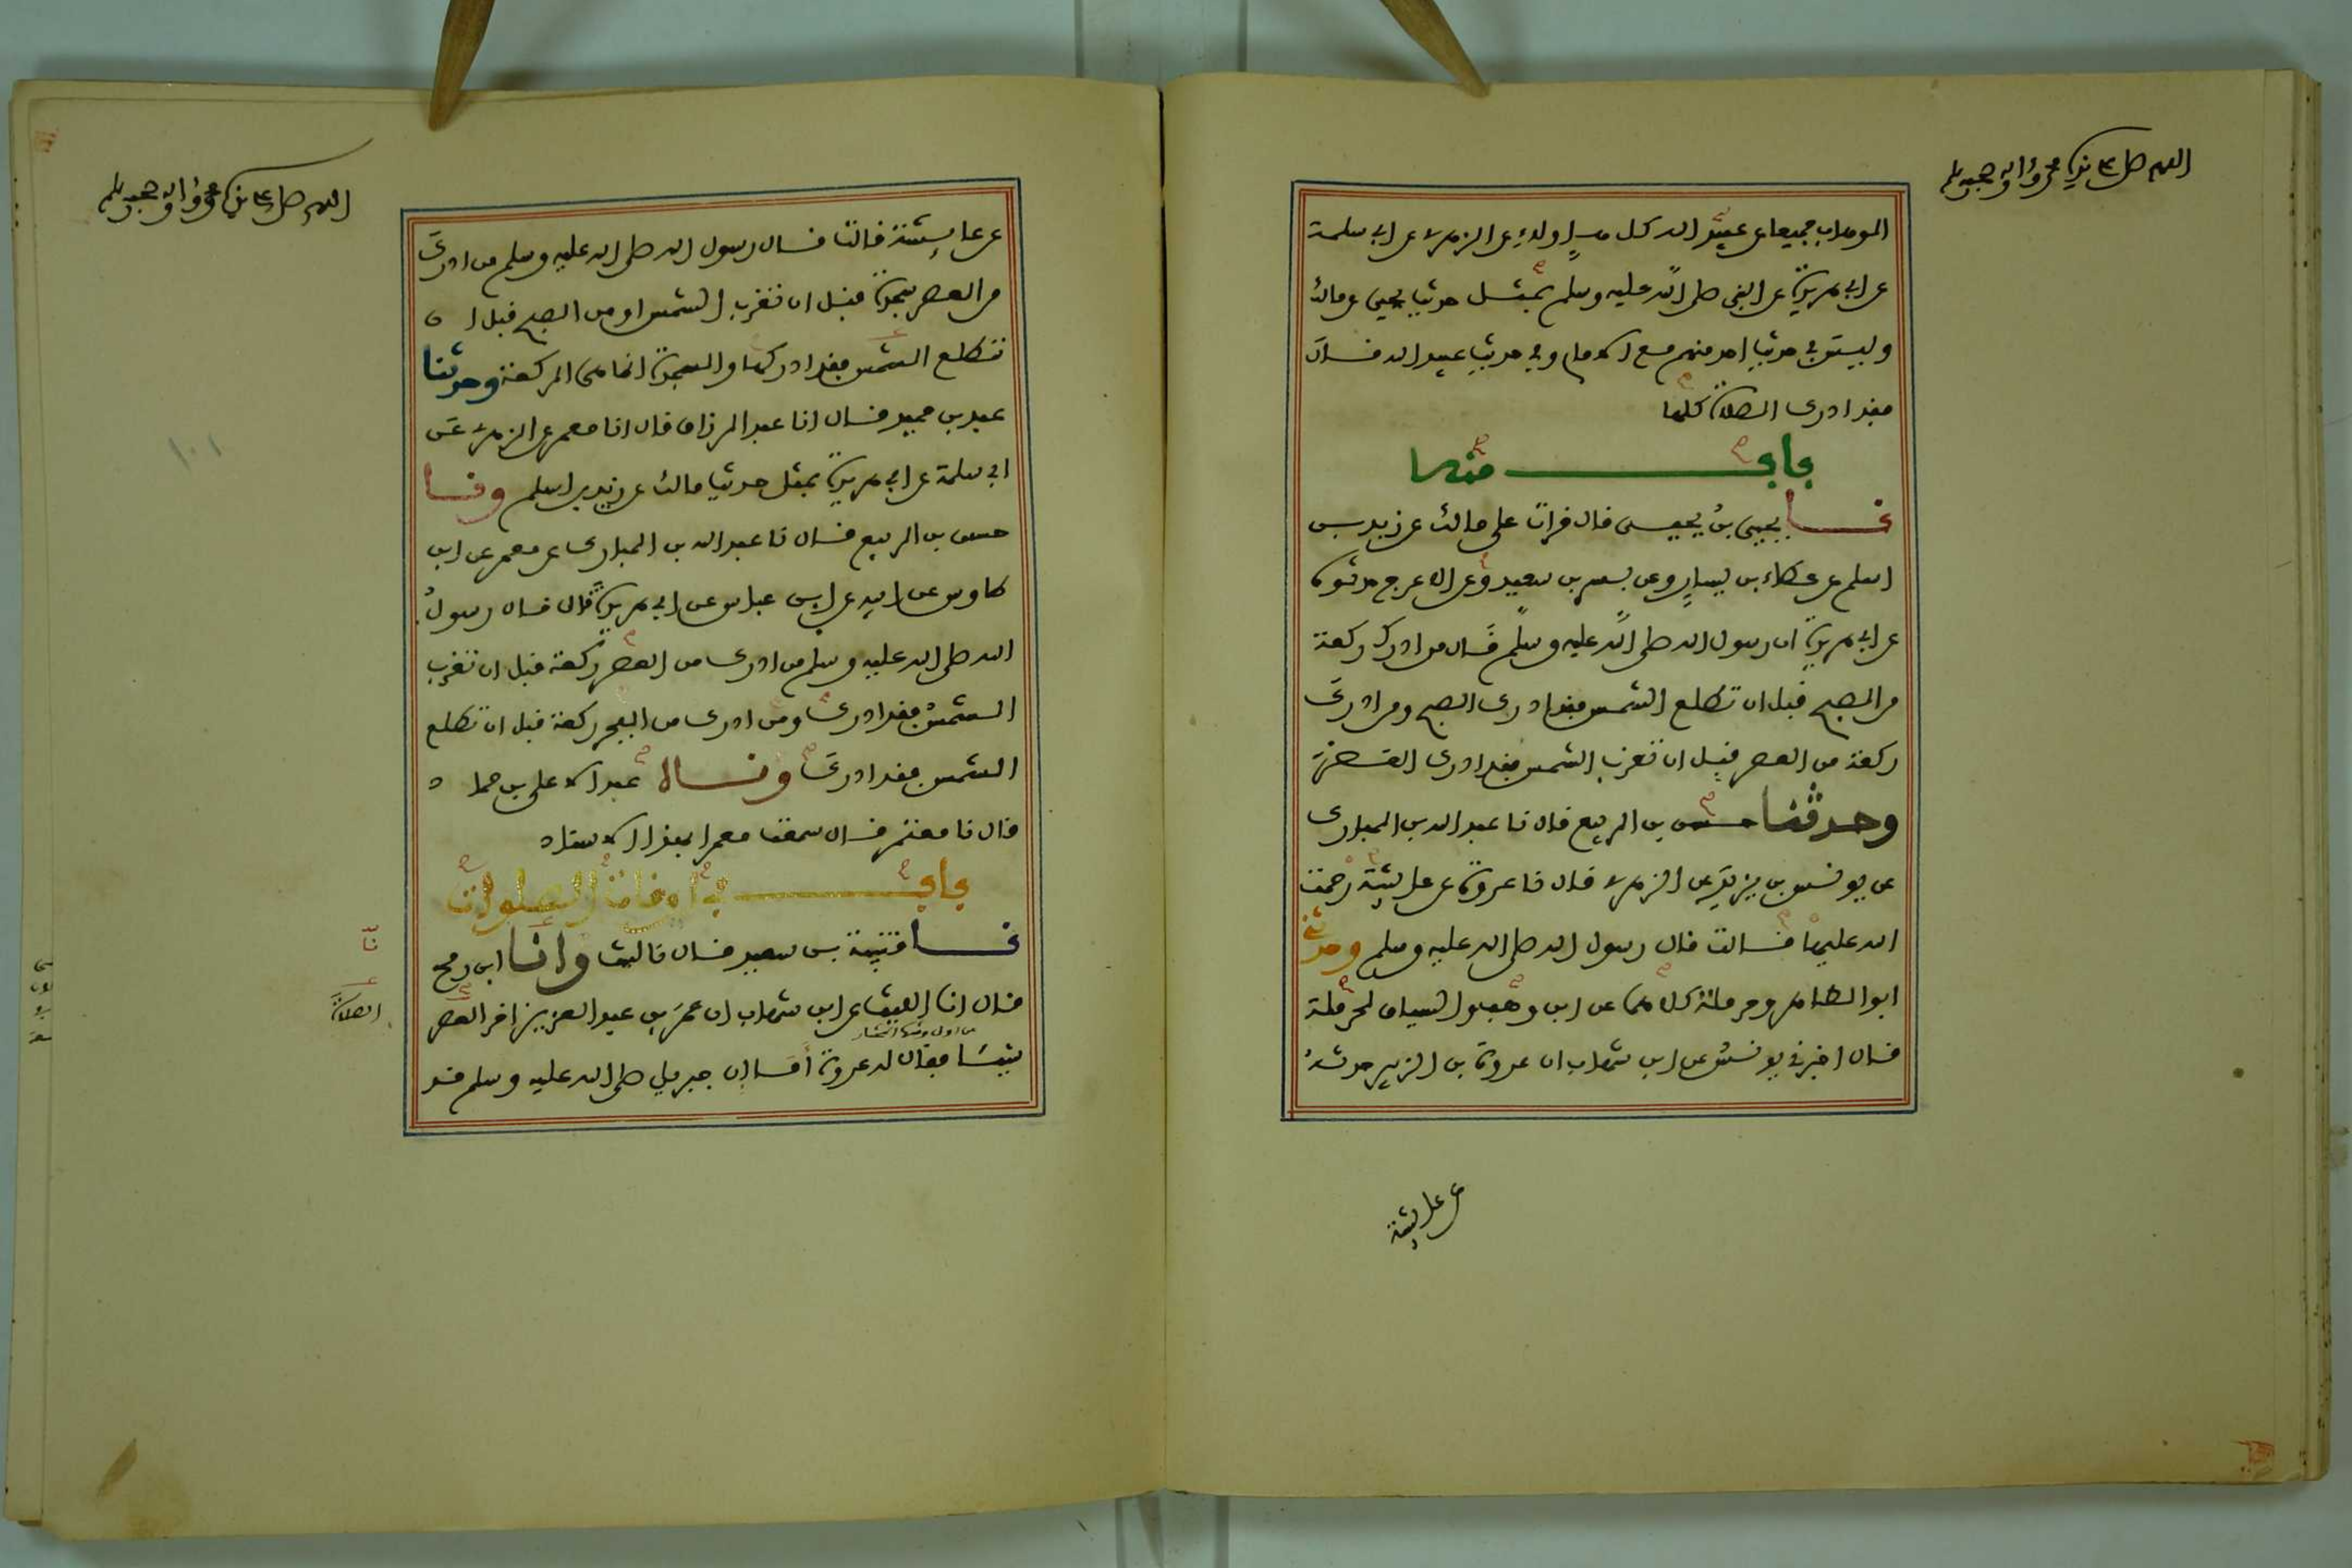 اللهم صل على سيدنا محمد وآله وصحبه وسلم
الوهاب جميعا عن عبيد الله كل هؤلاء عن الزهري عن ابي سلمة
عن ابي هريرة عن النبي صلى الله عليه وسلم بمثل حديث يحيى عن مالك
وليس في حديث احد منهم مع الامام وفي حديث عبيد الله قال
فقد ادرك الصلاة كلها
باب منه
نا يحيى بن يحيى قال قرات على مالك عن زيد بن
اسلم عن عطاء بن يسار وعن بسر بن سعيد وعن الاعرج حدثوه
عن ابي هريرة ان رسول الله صلى الله عليه وسلم قال من ادرك ركعة
من الصبح قبل ان تطلع الشمس فقد ادرك الصبح ومن ادرك
ركعة من العصر قبل ان تغرب الشمس فقد ادرك العصر
وحدثنا حسن بن الربيع قال نا عبد الله بن المبارك
عن يونس بن يزيد عن الزهري قال نا عروة عن عايشة رحمت
الله عليها قالت قال رسول الله صلى الله عليه وسلم وحدثني
ابو الطاهر وحرملة كلاهما عن ابن وهب والسياق لحرملة
قال اخبرني يونس عن ابن شهاب ان عروة بن الزبير حدثه
عن عايشة
اللهم صل على سيدنا محمد وآله وصحبه وسلم
عن عايشة قالت قال رسول الله صلى الله عليه وسلم من ادرك
من العصر سجدة قبل ان تغرب الشمس او من الصبح قبل ان
تطلع الشمس فقد ادركها والسجدة انما هي الركعة وحدثنا
عبد بن حميد قال انا عبد الرزاق قال انا معمر عن الزهري عن
ابي سلمة عن ابي هريرة بمثل حديث مالك عن زيد بن اسلم ونا
حسن بن الربيع قال نا عبد الله بن المبارك عن معمر عن ابن
طاوس عن ابيه عن ابن عباس عن ابي هريرة قال قال رسول
الله صلى الله عليه وسلم من ادرك من العصر ركعة قبل ان تغرب
الشمس فقد ادرك ومن ادرك من الفجر ركعة قبل ان تطلع
الشمس فقد ادرك وناه عبد الاعلى بن حماد
قال نا معتمر قال سمعت معمرا بهذا الاسناد
باب في اوقات الصلوات
نا قتيبة بن سعيد قال نا ليث وانا ابن رمح
نا
قال انا الليث عن ابن شهاب ان عمر بن عبد العزيز اخر العصر
الصلاة
شيئا فقال له عروة أما ان جبريل صلى الله عليه وسلم قد
١٠١